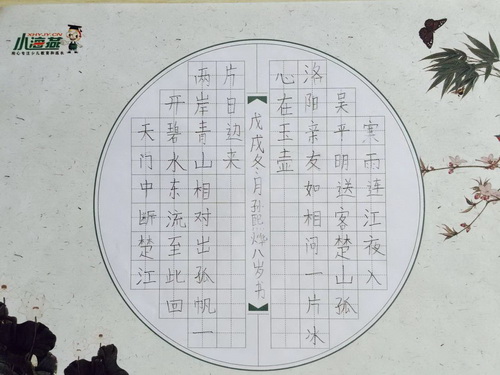 小海燕
XHYJY.CN
寒雨连江夜入
吴平明送客楚山孤
洛阳亲友如相问一片冰
心在玉壶
天门中断楚江
开碧水东流至此回
两岸青山相对出孤帆一
片日边来
戊戌冬月孙八岁书